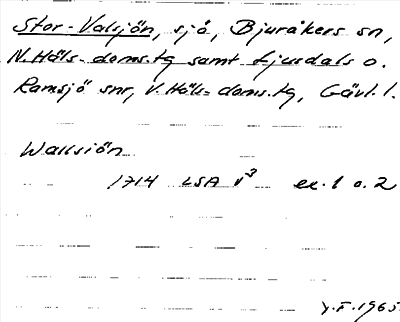 Stor-Valsjön, sjö, Bjuråkers sn,
N. Häls. doms.tg samt Ljusdals o.
Ramsjö snr, V. Häls. doms.tg, Gävl. l.
Wallsiön
1714 LSA V³ ex. 1 o. 2
Y.F. 1965